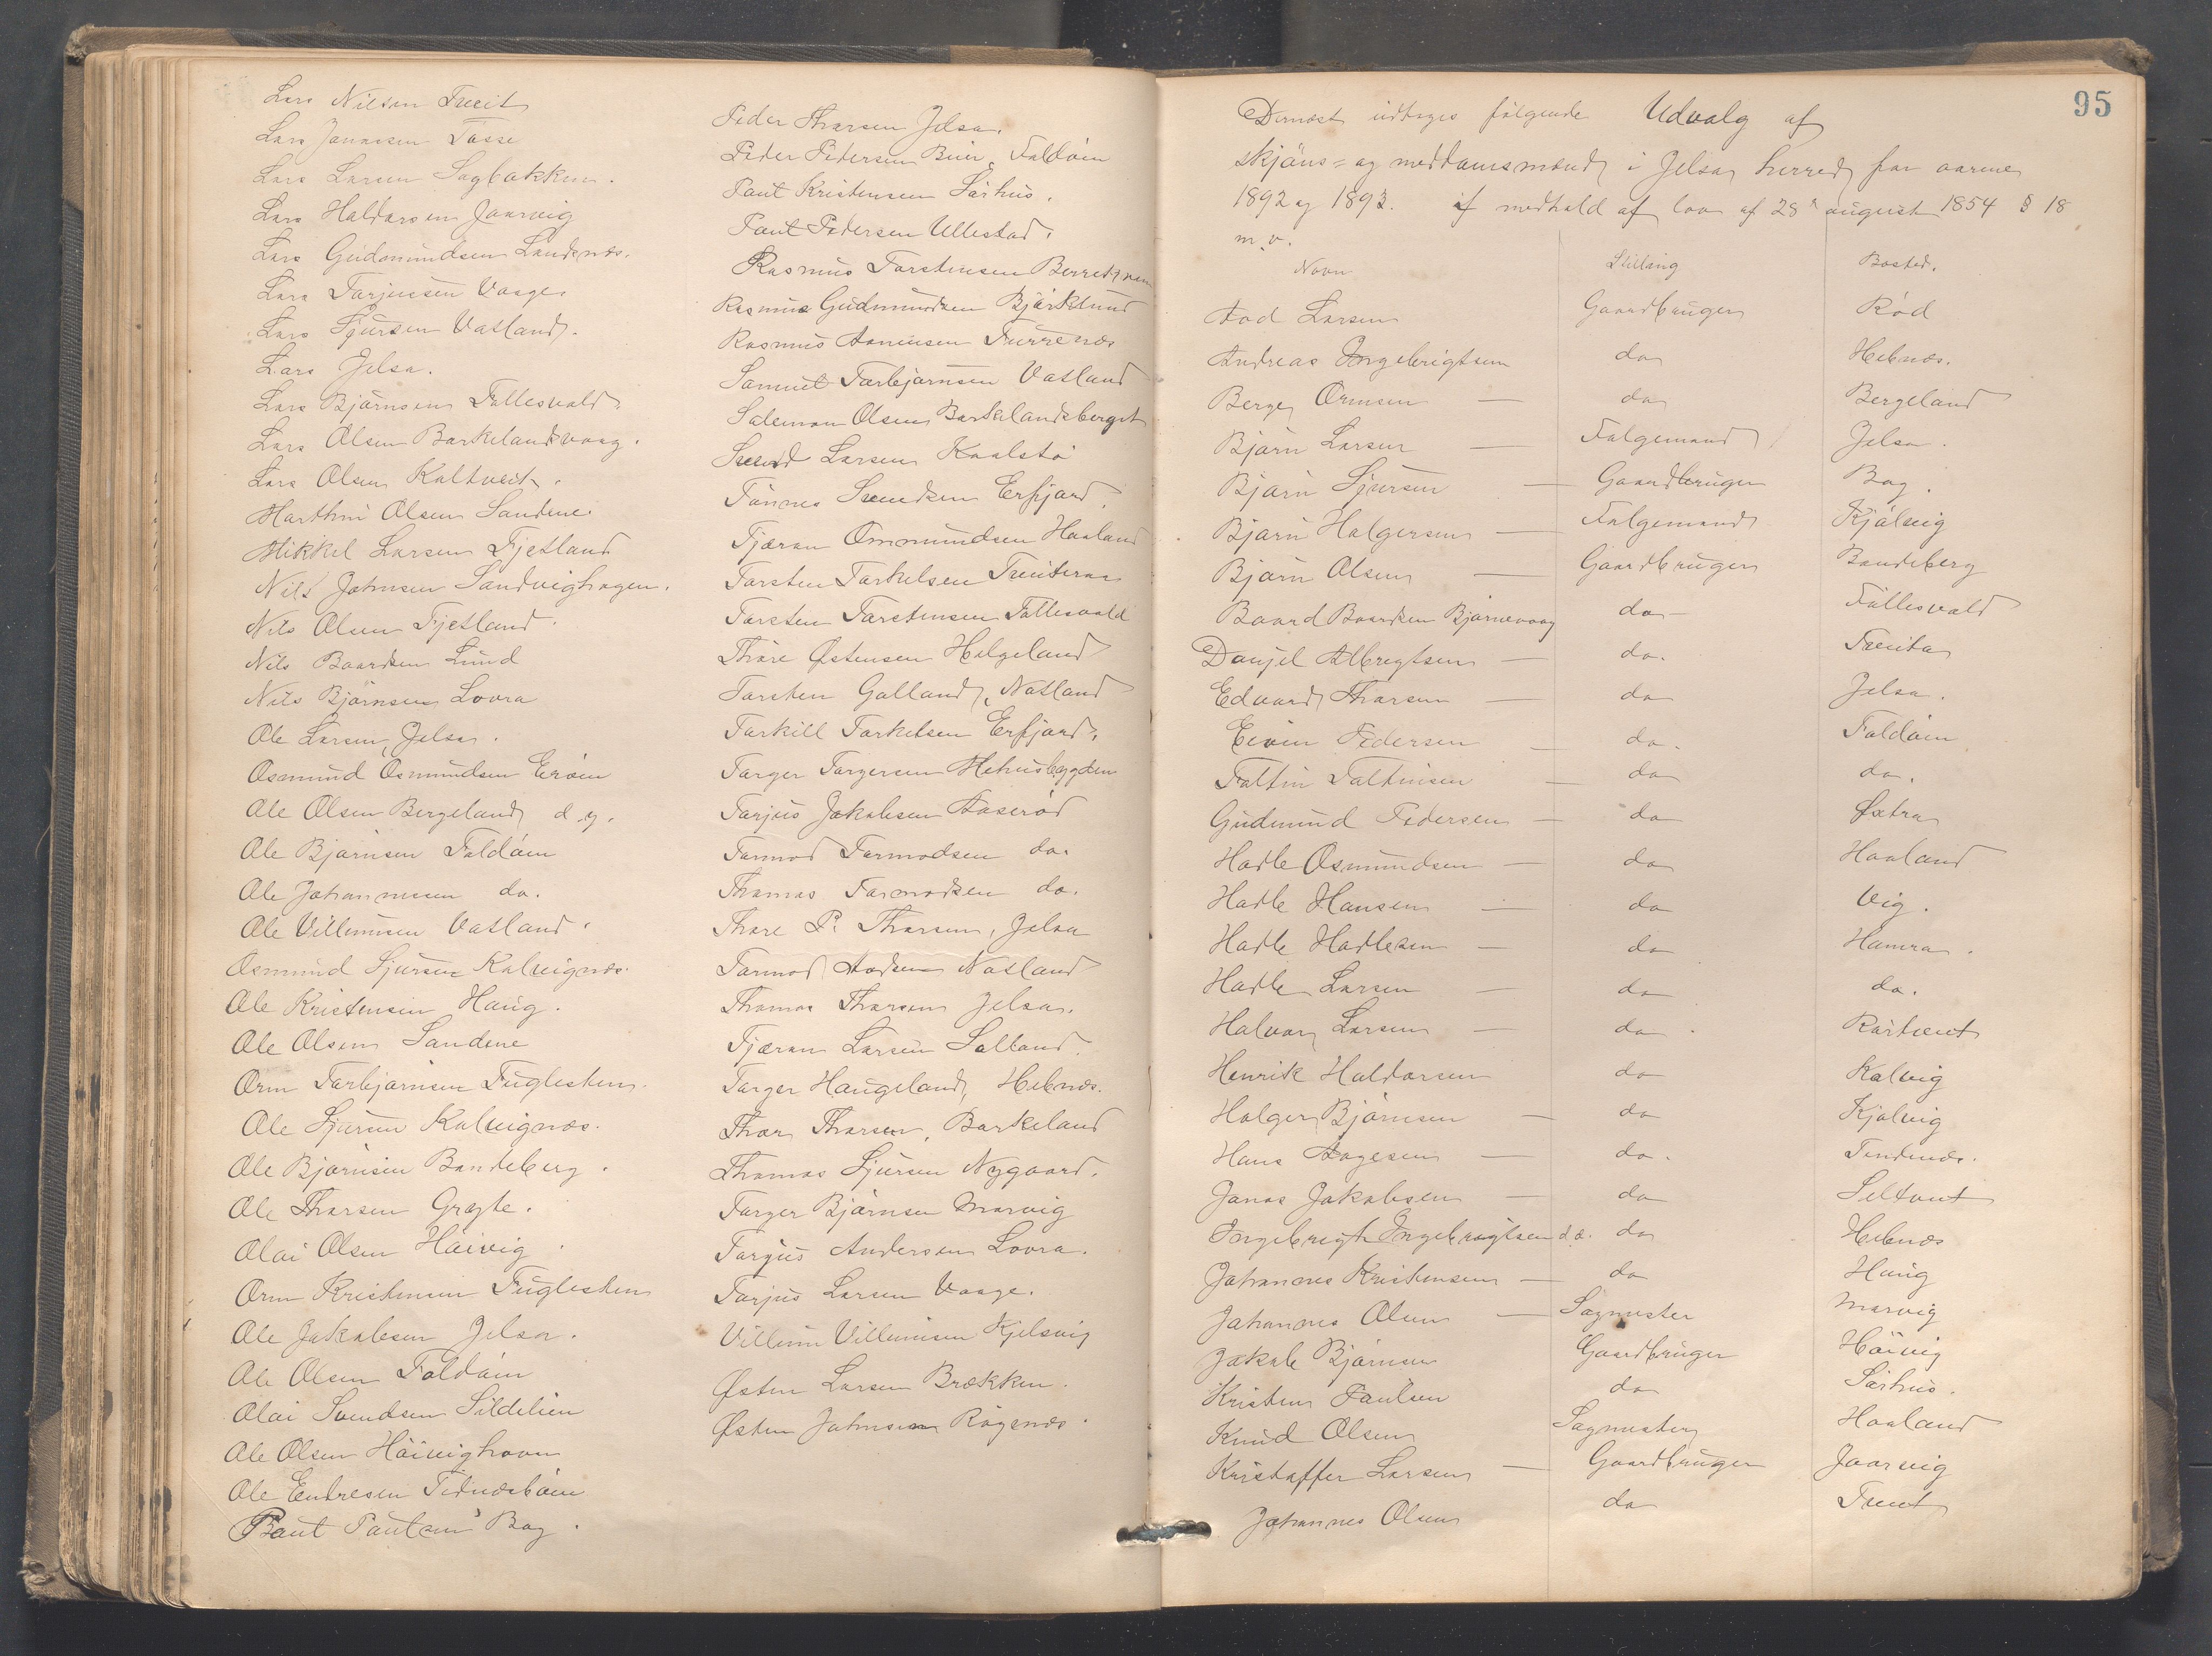 Lars Nilsen Tveit
Lars Johannesen Tösse
Lars Larsen Sagbakken.
Lars Haldorsen Jaarvig
Lars Gudmundsen Landsnæs.
Lars Tarjeisen Vaage.
Lars Sjursen Vatland.
Lars Jelsa.
Lars Björnsen Follesvold
Lars Olsen Barkelandsvaag.
Lars Olsen Kaltveit.
Marthin Olsen Sandene.
Mikkel Larsen Fjetland
Nils Johnsen Sandvighagen.
Nils Olsen Fjetland.
Nils Baardsen Lund
Nils Björnsen Lovra
Ole Larsen, Jelsa.
Osmund Osmundsen Eröen
Ole Olsen Bergeland d. y.
Ole Björnsen Foldöen
Ole Johannesen do.
Ole Villumsen Vatland.
Osmund Sjursen Kalvignæs.
Ole Kristensen Haug.
Ole Olsen Sandene
Orm Torbjörnsen Fuglesten.
Ole Sjursen Kalvignæs.
Ole Björnsen Bandeberg.
Ole Thorsen Grøgte.
Olai Olsen Höivig
Orm Kristensen Fuglesten
Ole Jakobsen Jelsa.
Ole Olsen Foldöen
Olai Svendsen Sildelien
Ole Olsen Höivighavn
Ole Endresen Tednæsböen
Poul Poulsen Bog.
Peder Thorsen Jelsa.
Peder Pedersen Buer, Foldöen
Poul Kristensen Sörhus.
Poul Pedersen Ullestad.
Rasmus Torstensen
Rasmus Gudmundsen Björklund
Rasmus Aanensen Furrenæs
Samuel Torbjörnsen Vatland
Salemon Olsen Barkelandsberget
Svend Larsen Kaalstö
Tönnes Svendsen Erfjord.
Tjæran Ommundsen Haaland
Torsten Torkelsen Tveiteraa
Torsten Torstensen Follesvold
Thore Østensen Helgeland
Torsten Golland, Natland
Torkill Torkelsen Erfjord.
Torger Torgersen Hehusbygden
Tarjus Jakobsen Aaseröd
Tormod Tormodsen do.
Thomas Tormodsen do.
Thore P. Thorsen, Jelsa
Tormod Aadsen Natland
Thomas Thorsen Jelsa.
Tjæran Larsen Solland.
Torger Haugeland, Hebnæs.
Thor Thorsen, Barkeland
Thomas Sjursen Nygaard.
Torger Björnsen Marvig
Torgius Andersen Lovra.
Tarjus Larsen Vaage.
Villum Villumsen Kjelsvig
Østen Larsen Brækken.
Østen Johnsen Rögenæs.
95
Dernæst udtoges følgende Udvalg af
skjöns- og meddomsmænd i Jelsa herred for aarene
1892 og 1893. i medhold af lov af 28 august 1854 § 18
m. v.
Navn Stilling Bosted.
Aad Larsen Gaardbruger Röd
Andreas Ingebrigtsen do Hebnæs.
Berge Ormsen — do Bergeland
Björn Larsen — Folgemand Jelsa.
Björn Sjursen — Gaardbruger Bog.
Björn Holgersen — Folgemand Kjölvig
Björn Olsen — Gaardbruger Bandeberg
Baard Baardsen Björnevaag do — Follesvold
Danjel Albregtsen — do. Tveita
Edvard Thorsen — do Jelsa.
Eivin Pedersen — do. Foldöen
Foltin Foltinsen — do do.
Gudmund Pedersen — do Øxtra
Hadle Osmundsen — do Haaland
Hadle Hansen — do Vig.
Hadle Hadlesen — do Hamra.
Hadle Larsen — do do.
Halvor Larsen — do. Rörtveit
Henrik Haldorsen do Kalvig
Holger Björnsen — do Kjölvig
Hans Aagesen — do. Tendenæs.
Jonas Jakobsen — do Seltveit
Ingebregt Ingebregtsen d. æ. do Hebnæs
Johannes Kristensen — do Haug
Johannes Olsen — Sagmester Marvig
Jakob Björnsen Gaardbruger Höivig
Kristen Poulsen do Sörhus.
Knud Olsen Sagmester Haaland
Kristoffer Larsen — Gaardbruger Jaarvig
Johannes Olsen do Tveit